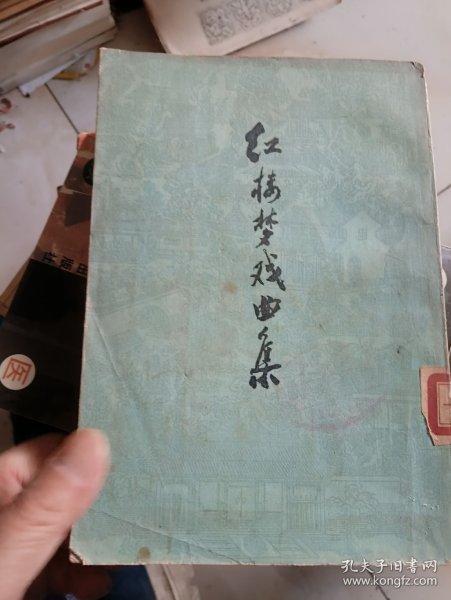 红楼梦戏曲集
医
孔夫子旧书网
www.kongfz.com